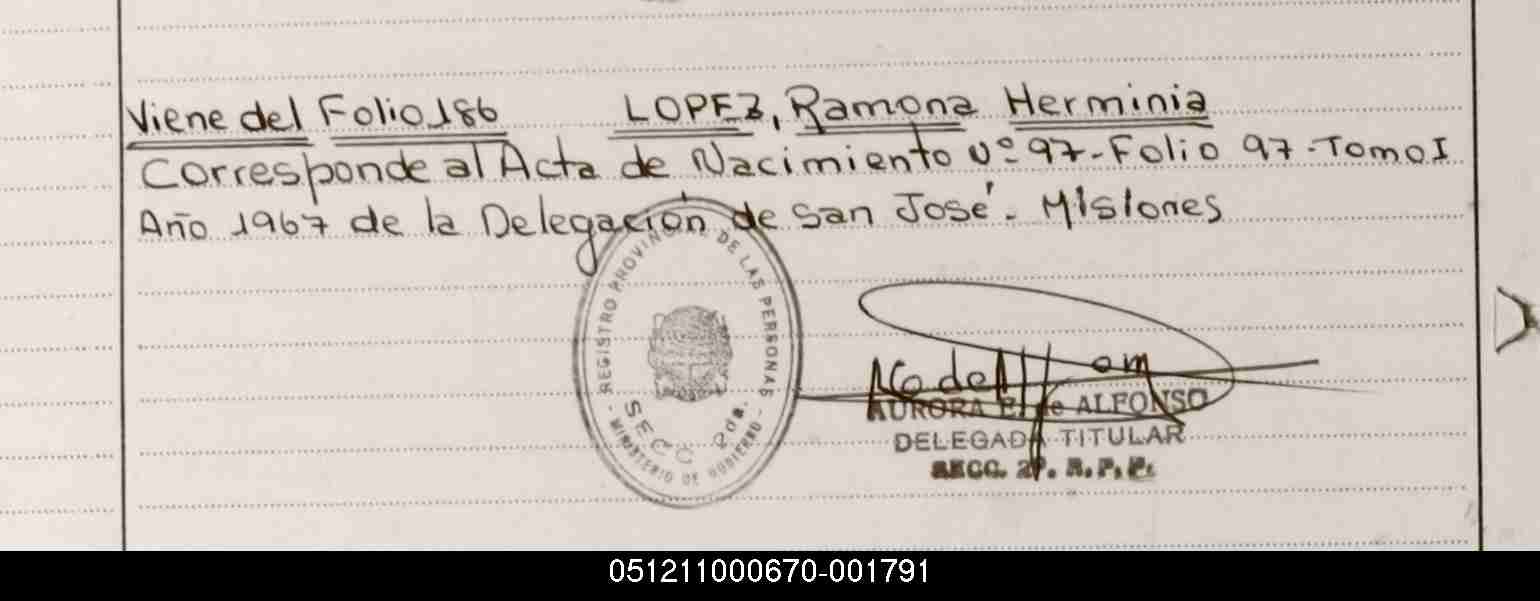 Viene del Folio 186 LOPEZ, Ramona Herminia
Corresponde al Acta de Nacimiento Nº 97 - Folio 97 - Tomo I
Año 1967 de la Delegación de San José - Misiones
REGISTRO PROVINCIAL DE LAS PERSONAS
SECC 2da.
- MINISTERIO DE GOBIERNO -
AURORA E. de ALFONSO
DELEGADA TITULAR
SECC. 2ª. R. P. P.
051211000670-001791